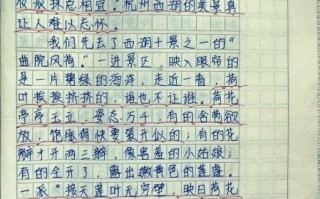 妆浓抹总相宜。杭州西湖的美景真
让人难以忘怀。
我们先去了西湖十景之一的“
曲院风荷”。一进景区，映入眼帘的
是一片碧绿的海洋，走近一看，荷
叶挨挨挤挤的，谁也不让谁。荷花
亭亭玉立，姿态万千，有的含苞欲
放，饱胀得快要裂开似的；有的花
瓣才开两三瓣，像害羞的小姑娘；
有的全开了，露出嫩黄色的莲蓬。
一派“接天莲叶无穷碧，映日荷花